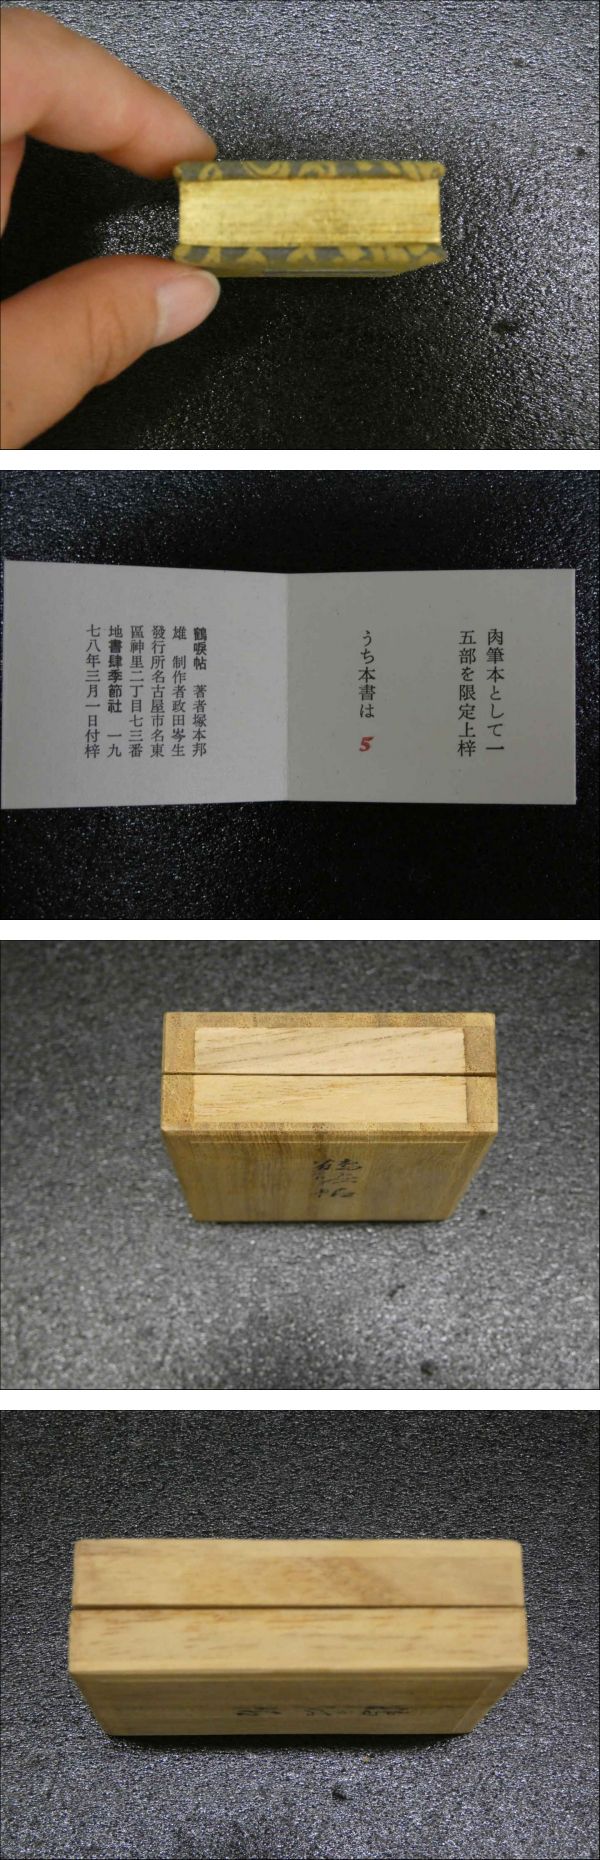 肉筆本として一
五部を限定上梓
うち本書は 5
鶴唳帖 著者塚本邦
雄 制作者政田岑生
發行所名古屋市名東
區神里二丁目七三番
地書肆季節社 一九
七八年三月一日付梓